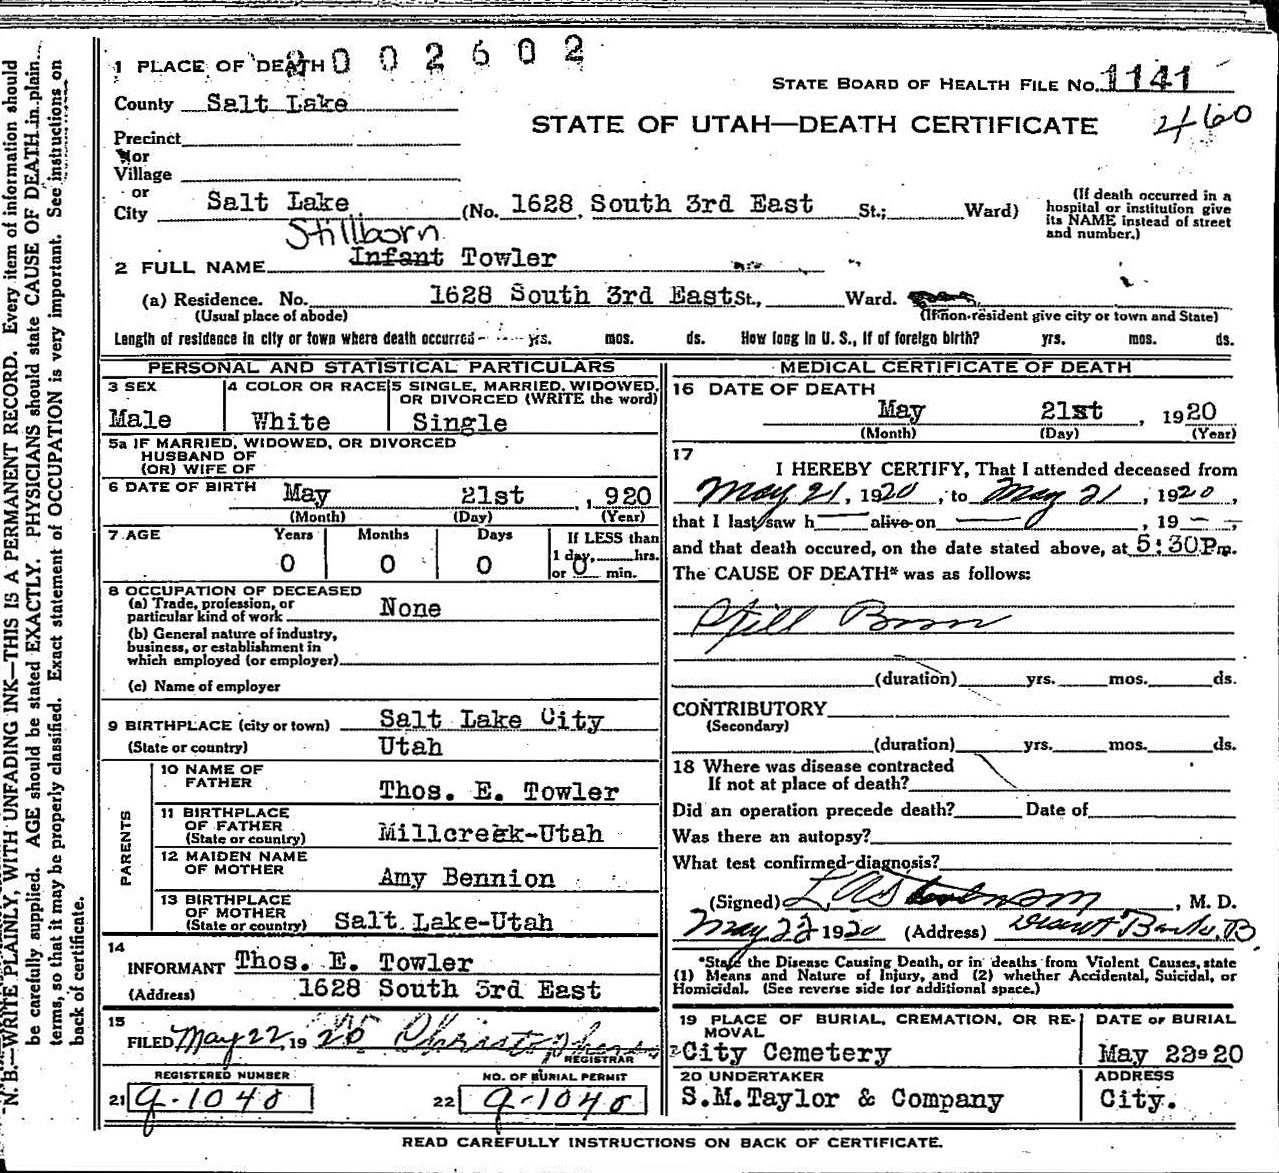 2002602
1 PLACE OF DEATH
STATE BOARD OF HEALTH FILE NO. 1141
County Salt Lake
STATE OF UTAH—DEATH CERTIFICATE
2460
Precinct
or
Village
or
City Salt Lake (No. 1628 South 3rd East St.; Ward)
(If death occurred in a hospital or institution give its NAME instead of street and number.)
Stillborn
2 FULL NAME Infant Towler
(a) Residence. No. 1628 South 3rd East St., Ward.
(Usual place of abode) (If non-resident give city or town and State)
Length of residence in city or town where death occurred yrs. mos. ds. How long in U. S., if of foreign birth? yrs. mos. ds.
PERSONAL AND STATISTICAL PARTICULARS
3 SEX 4 COLOR OR RACE 5 SINGLE, MARRIED, WIDOWED, OR DIVORCED (WRITE the word)
Male White Single
5a IF MARRIED, WIDOWED, OR DIVORCED
HUSBAND OF
(OR) WIFE OF
6 DATE OF BIRTH May 21st , 920
(Month) (Day) (Year)
7 AGE Years Months Days If LESS than
1 day, hrs.
0 0 0 or 0 min.
8 OCCUPATION OF DECEASED
(a) Trade, profession, or
particular kind of work None
(b) General nature of industry,
business, or establishment in
which employed (or employer)
(c) Name of employer
9 BIRTHPLACE (city or town) Salt Lake City
(State or country) Utah
PARENTS
10 NAME OF
FATHER Thos. E. Towler
11 BIRTHPLACE
OF FATHER
(State or country) Millcreek-Utah
12 MAIDEN NAME
OF MOTHER Amy Bennion
13 BIRTHPLACE
OF MOTHER
(State or country) Salt Lake-Utah
14
INFORMANT Thos. E. Towler
(Address) 1628 South 3rd East
15
FILED May 22, 1920 Christophers
REGISTRAR
REGISTERED NUMBER NO. OF BURIAL PERMIT
21 9-1040 22 9-1040
MEDICAL CERTIFICATE OF DEATH
16 DATE OF DEATH
May 21st , 1920
(Month) (Day) (Year)
17
I HEREBY CERTIFY, That I attended deceased from
May 21, 1920, to May 21, 1920,
that I last saw h alive on , 19 — ,
and that death occured, on the date stated above, at 5:30 P.m.
The CAUSE OF DEATH* was as follows:
Still Born
(duration) yrs. mos. ds.
CONTRIBUTORY
(Secondary)
(duration) yrs. mos. ds.
18 Where was disease contracted
If not at place of death?
Did an operation precede death? Date of
Was there an autopsy?
What test confirmed diagnosis?
(Signed) , M. D.
May 22 1920 (Address)
*State the Disease Causing Death, or in deaths from Violent Causes, state
(1) Means and Nature of Injury, and (2) whether Accidental, Suicidal, or
Homicidal. (See reverse side for additional space.)
19 PLACE OF BURIAL, CREMATION, OR RE-
MOVAL
City Cemetery
DATE OF BURIAL
May 22 1920
20 UNDERTAKER
S.M.Taylor & Company
ADDRESS
City.
READ CAREFULLY INSTRUCTIONS ON BACK OF CERTIFICATE.
N. B.—WRITE PLAINLY, WITH UNFADING INK—THIS IS A PERMANENT RECORD. Every item of information should
be carefully supplied. AGE should be stated EXACTLY. PHYSICIANS should state CAUSE OF DEATH in plain
terms, so that it may be properly classified. Exact statement of OCCUPATION is very important. See instructions on
back of certificate.